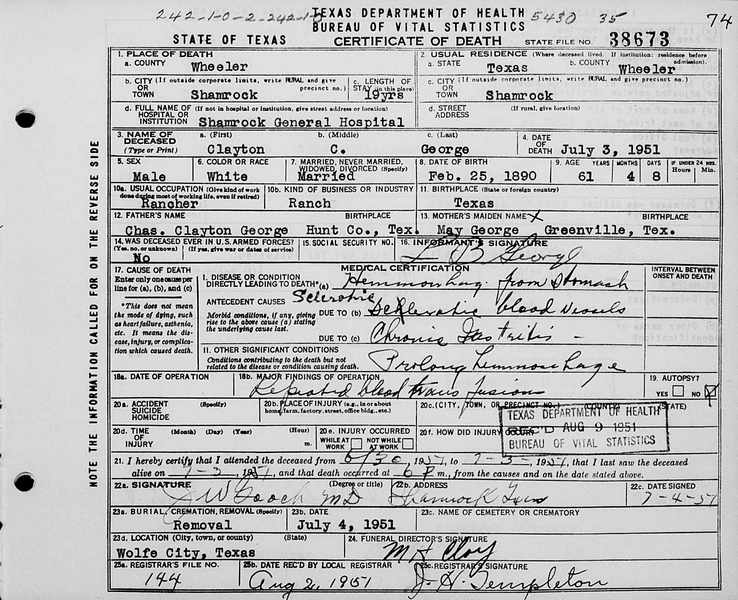 242-1-0-2-242-1-0 TEXAS DEPARTMENT OF HEALTH 5430 35 74
BUREAU OF VITAL STATISTICS
STATE OF TEXAS CERTIFICATE OF DEATH STATE FILE NO. 38673
1. PLACE OF DEATH 2. USUAL RESIDENCE (Where deceased lived. If institution: residence before admission).
a. COUNTY Wheeler a. STATE Texas b. COUNTY Wheeler
b. CITY (If outside corporate limits, write RURAL and give precinct no.) OR TOWN Shamrock c. LENGTH OF STAY (in this place) 19yrs c. CITY (If outside corporate limits, write RURAL and give precinct no.) OR TOWN Shamrock
d. FULL NAME OF (If not in hospital or institution, give street address or location) HOSPITAL OR INSTITUTION Shamrock General Hospital d. STREET ADDRESS (If rural, give location)
3. NAME OF DECEASED (Type or Print) a. (First) Clayton b. (Middle) C. c. (Last) George 4. DATE OF DEATH July 3, 1951
5. SEX Male 6. COLOR OR RACE White 7. MARRIED, NEVER MARRIED, WIDOWED, DIVORCED (Specify) Married 8. DATE OF BIRTH Feb. 25, 1890 9. AGE YEARS 61 MONTHS 4 DAYS 8 IF UNDER 24 HRS. Hours Min.
10a. USUAL OCCUPATION (Give kind of work done during most of working life, even if retired) Rancher 10b. KIND OF BUSINESS OR INDUSTRY Ranch 11. BIRTHPLACE (State or foreign country) Texas
12. FATHER'S NAME Chas. Clayton George BIRTHPLACE Hunt Co., Tex. 13. MOTHER'S MAIDEN NAME X May George BIRTHPLACE Greenville, Tex.
14. WAS DECEASED EVER IN U.S. ARMED FORCES? (Yes, no, or unknown) No (If yes, give war or dates of service) 15. SOCIAL SECURITY NO. 16. INFORMANT'S SIGNATURE George
MEDICAL CERTIFICATION
17. CAUSE OF DEATH Enter only one cause per line for (a), (b), and (c) I. DISEASE OR CONDITION DIRECTLY LEADING TO DEATH* (a) Hemmorrhag. from Stomach INTERVAL BETWEEN ONSET AND DEATH
*This does not mean the mode of dying, such as heart failure, asthenia, etc. It means the disease, injury, or complication which caused death.
ANTECEDENT CAUSES Sclerotic
Morbid conditions, if any, giving rise to the above cause (a) stating the underlying cause last. DUE TO (b) blood vessels
DUE TO (c) Chronic Gastritis -
11. OTHER SIGNIFICANT CONDITIONS
Conditions contributing to the death but not related to the disease or condition causing death. Prolong hemmorrhage
18a. DATE OF OPERATION 18b. MAJOR FINDINGS OF OPERATION Repeated blood transfusions 19. AUTOPSY? YES NO X
20a. ACCIDENT SUICIDE HOMICIDE (Specify) 20b. PLACE OF INJURY (e.g., in or about home, farm, factory, street, office bldg., etc.) 20c. (CITY, TOWN, OR PRECINCT NO.) (COUNTY) (STATE)
20d. TIME OF INJURY (Month) (Day) (Year) (Hour) m. 20e. INJURY OCCURRED WHILE AT WORK NOT WHILE AT WORK 20f. HOW DID INJURY OCCUR?
TEXAS DEPARTMENT OF HEALTH
REC'D AUG 9 1951
BUREAU OF VITAL STATISTICS
21. I hereby certify that I attended the deceased from 6/30, 1951, to 7-3-, 1951, that I last saw the deceased
alive on 7-3-, 1951, and that death occurred at 6 P m., from the causes and on the date stated above.
22a. SIGNATURE (Degree or title) J W Gooch MD 22b. ADDRESS Shamrock Texas 22c. DATE SIGNED 7-4-51
23a. BURIAL, CREMATION, REMOVAL (Specify) Removal 23b. DATE July 4, 1951 23c. NAME OF CEMETERY OR CREMATORY
23d. LOCATION (City, town, or county) (State) Wolfe City, Texas 24. FUNERAL DIRECTOR'S SIGNATURE M H Clay
25a. REGISTRAR'S FILE NO. 144 25b. DATE REC'D BY LOCAL REGISTRAR Aug 2, 1951 25c. REGISTRAR'S SIGNATURE J. H. Templeton
NOTE THE INFORMATION CALLED FOR ON THE REVERSE SIDE